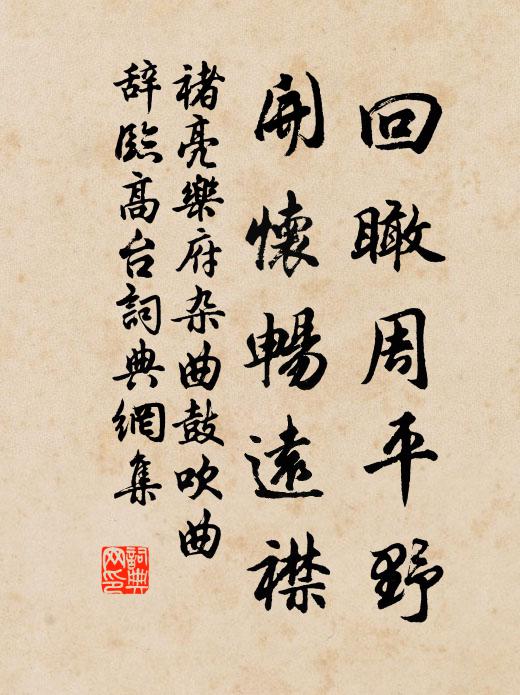 回瞰周平野
開懷暢遠襟
褚亮樂府杂曲鼓吹曲
辞臨高台詞典網集
詞典网印